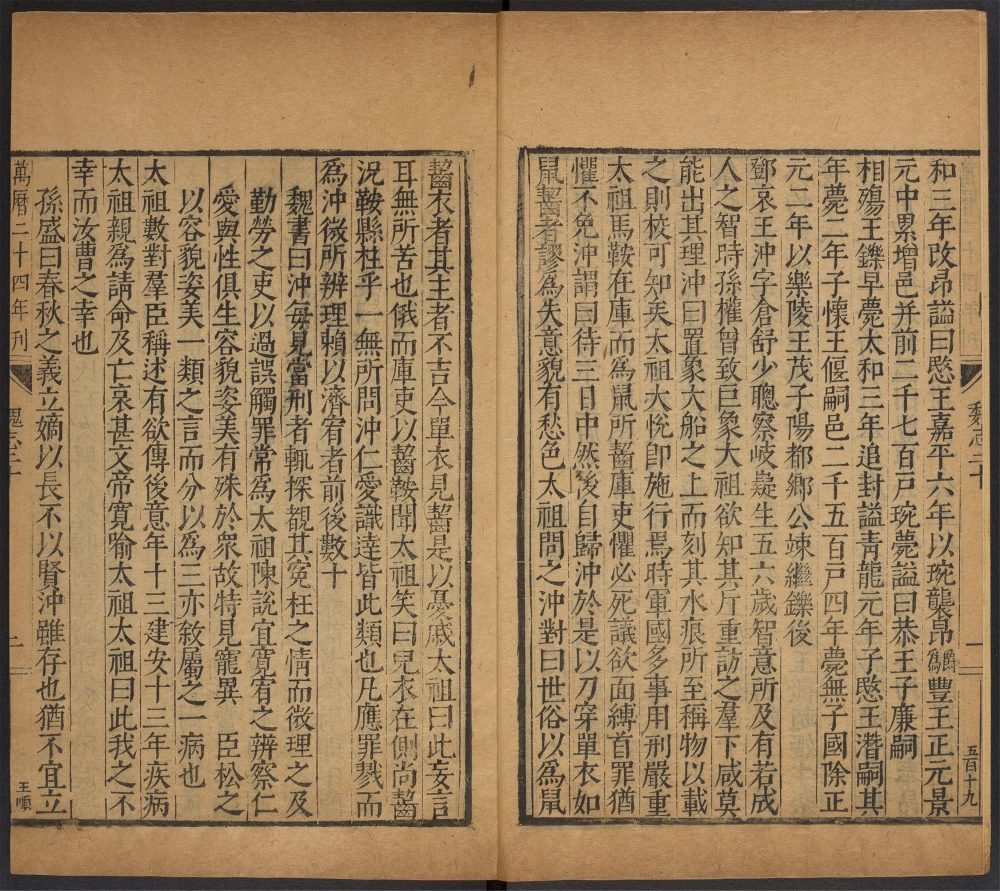 和三年改昂謚曰愍王嘉平六年以琬襲昂爵爲豐王正元景
元中累增邑并前二千七百戶琬薨謚曰恭王子廉嗣
相殤王鑠早薨太和三年追封謚青龍元年子愍王潛嗣其
年薨二年子懷王偃嗣邑二千五百戶四年薨無子國除正
元二年以樂陵王茂子陽都鄉公竦繼鑠後
鄧哀王沖字倉舒少聰察岐嶷生五六歲智意所及有若成
人之智時孫權曾致巨象太祖欲知其斤重訪之羣下咸莫
能出其理沖曰置象大船之上而刻其水痕所至稱物以載
之則校可知矣太祖大悅卽施行焉時軍國多事用刑嚴重
太祖馬鞍在庫而爲鼠所齧庫吏懼必死議欲面縛首罪猶
懼不免沖謂曰待三日中然後自歸沖於是以刀穿單衣如
鼠齧者謬爲失意貌有愁色太祖問之沖對曰世俗以爲鼠
魏志二十
一
五百十九
齧衣者其主者不吉今單衣見齧是以憂戚太祖曰此妄言
耳無所苦也俄而庫吏以齧鞍聞太祖笑曰兒衣在側尚齧
況鞍縣柱乎一無所問沖仁愛識達皆此類也凡應罪戮而
爲沖微所辨理賴以濟宥者前後數十
魏書曰沖每見當刑者輒探覩其冤枉之情而微理之及
勤勞之吏以過誤觸罪常爲太祖陳說宜寬宥之辨察仁
愛與性俱生容貌姿美有殊於衆故特見寵異 臣松之
以容貌姿美一類之言而分以爲三亦敘屬之一病也
太祖數對羣臣稱述有欲傳後意年十三建安十三年疾病
太祖親爲請命及亡哀甚文帝寬喻太祖太祖曰此我之不
幸而汝曹之幸也
孫盛曰春秋之義立嫡以長不以賢沖雖存也猶不宜立
萬曆二十四年刊
一
王順